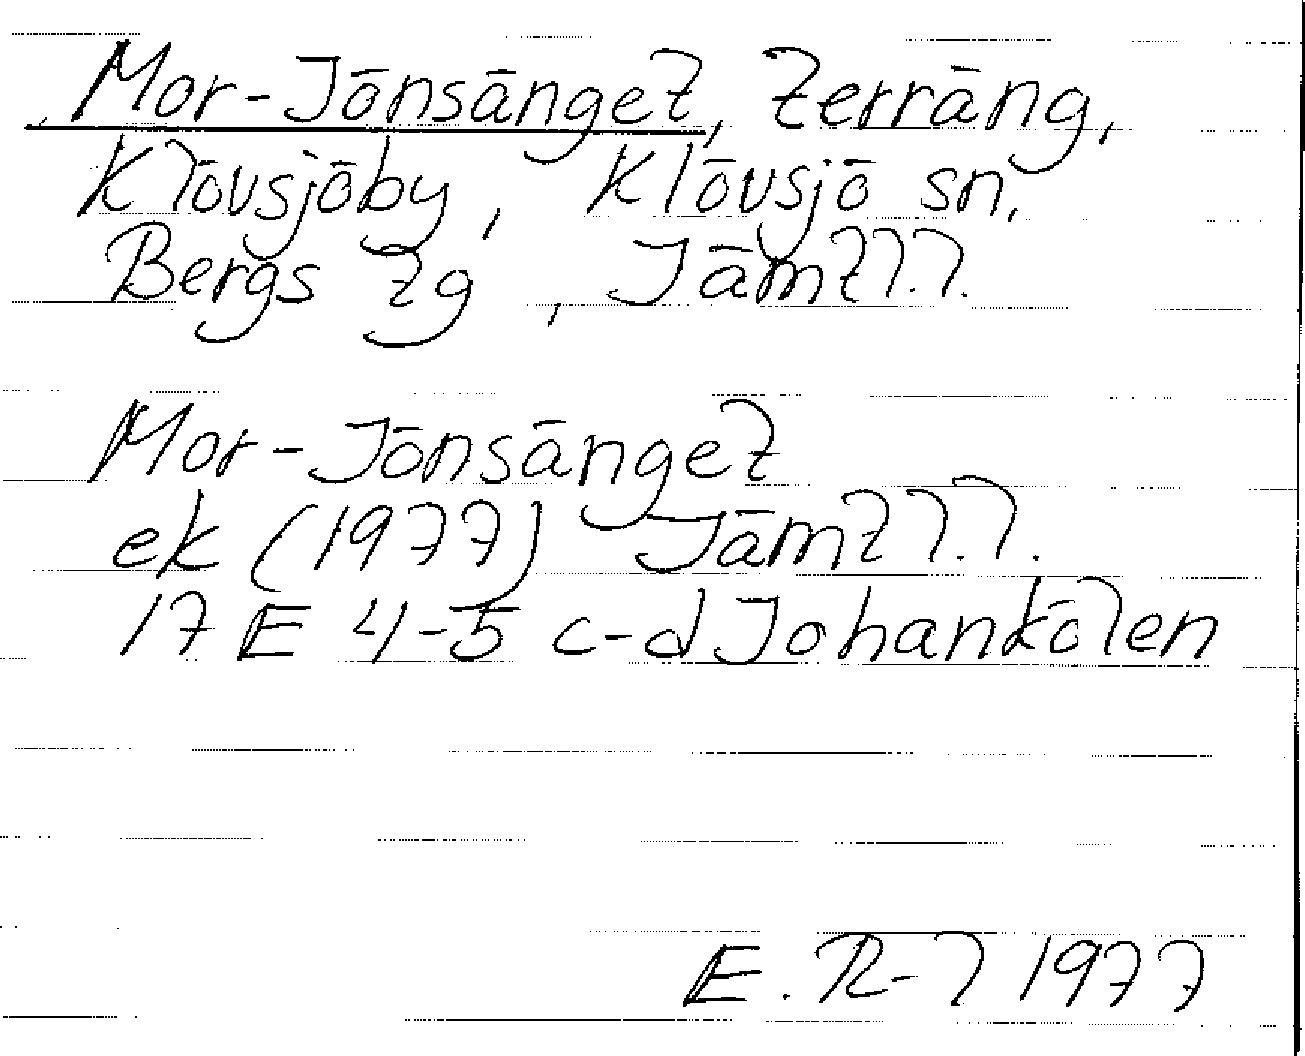 Mor-Jönsänget, terräng,
Klövsjöby, Klövsjö sn,
Bergs tg, Jämtl.l.
Mor-Jönsänget
ek (1977) Jämtl.l.
17 E 4-5 c-d Johankölen
E. R-l 1977